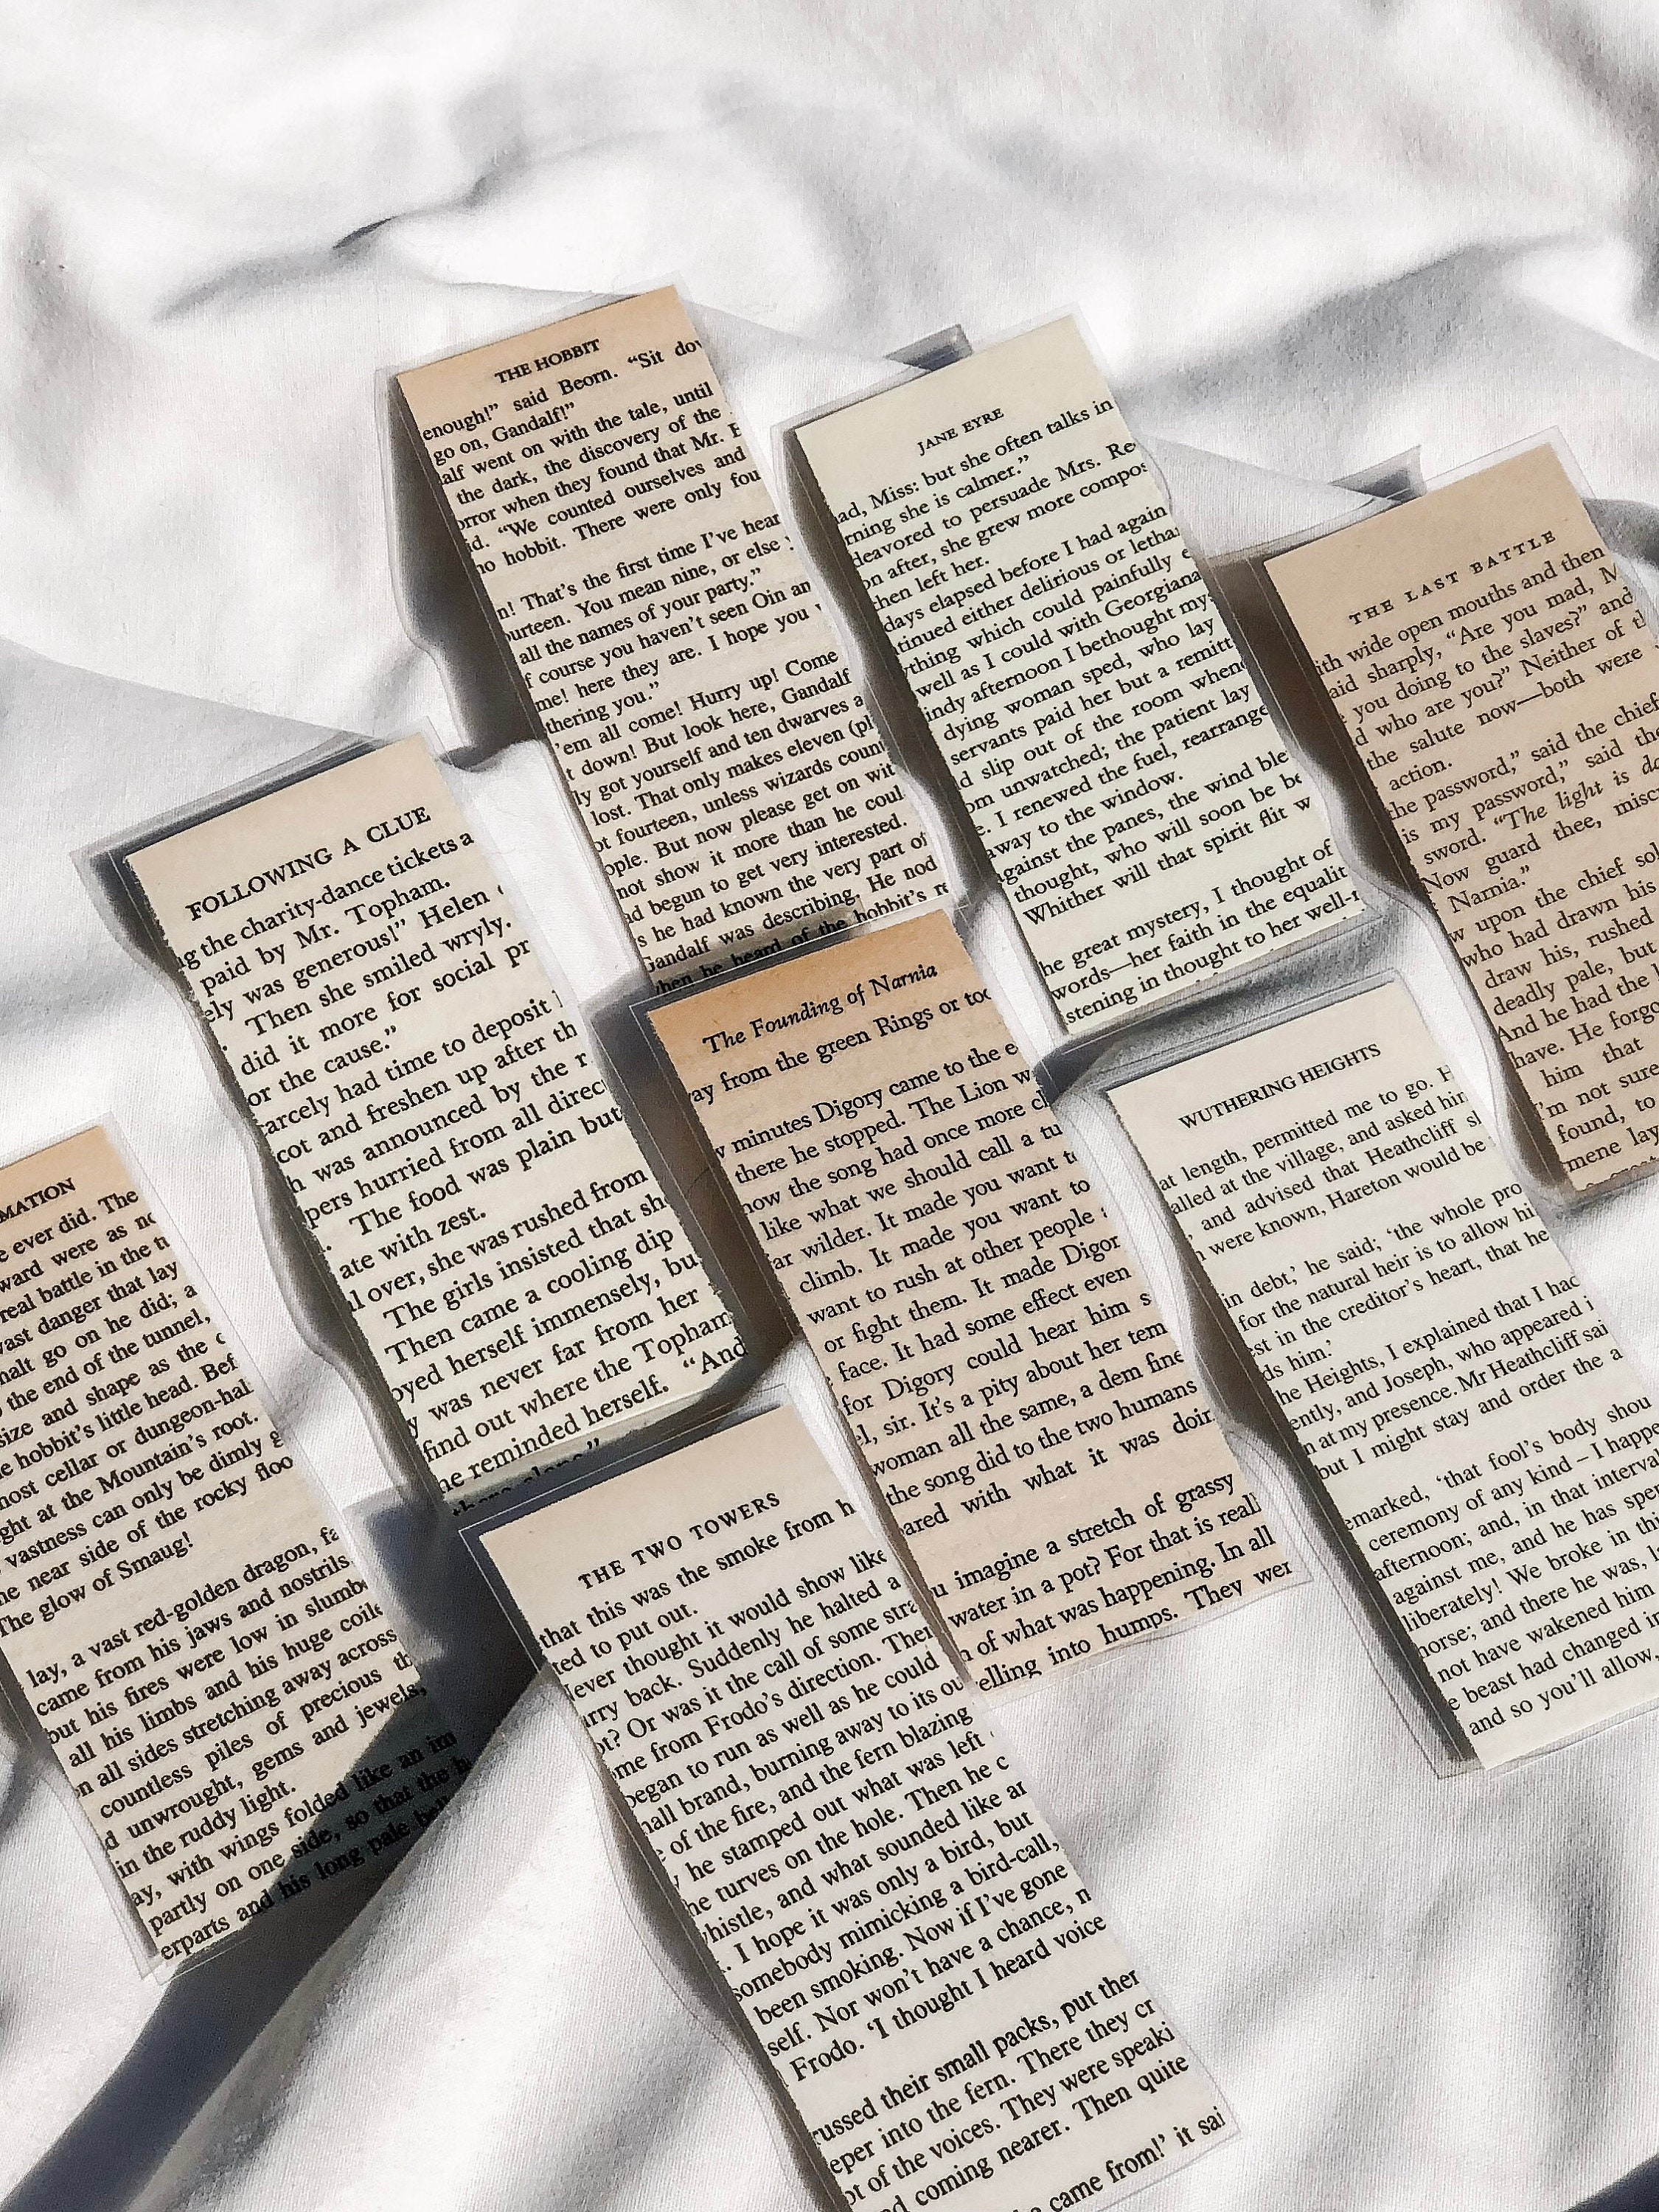 THE HOBBIT
enough!” said Beorn. “Sit dov
go on, Gandalf!”
alf went on with the tale, until
the dark, the discovery of the
orror when they found that Mr. B
d. “We counted ourselves and
no hobbit. There were only fou
n! That’s the first time I’ve hear
ourteen. You mean nine, or else y
all the names of your party.”
f course you haven’t seen Oin an
me! here they are. I hope you
thering you.”
’em all come! Hurry up! Come
t down! But look here, Gandalf
ly got yourself and ten dwarves a
lost. That only makes eleven (pl
ot fourteen, unless wizards coun
ople. But now please get on wit
not show it more than he coul
ad begun to get very interested.
s he had known the very part of
Gandalf was describing. He nod
when he heard of the hobbit’s re
JANE EYRE
ad, Miss: but she often talks in
rning she is calmer.”
deavored to persuade Mrs. Re
on after, she grew more compos
then left her.
days elapsed before I had again
ntinued either delirious or lethar
ything which could painfully e
well as I could with Georgiana
indy afternoon I bethought mys
dying woman sped, who lay
servants paid her but a remitt
d slip out of the room when
om unwatched; the patient lay
e. I renewed the fuel, rearrange
away to the window.
against the panes, the wind ble
thought, who will soon be be
Whither will that spirit flit w
he great mystery, I thought of
words—her faith in the equalit
stening in thought to her well-r
THE LAST BATTLE
ith wide open mouths and then
aid sharply, “Are you mad, M
e you doing to the slaves?” and
d who are you?” Neither of th
the salute now—both were
action.
the password,” said the chief
is my password,” said the
sword. “The light is da
Now guard thee, miscr
Narnia.”
w upon the chief sol
who had drawn his
draw his, rushed
deadly pale, but
And he had the l
have. He forgo
him that
I’m not sure
found, to
mene lay
FOLLOWING A CLUE
ng the charity-dance tickets a
paid by Mr. Topham.
ely was generous!” Helen
. Then she smiled wryly.
did it more for social pr
or the cause.”
carcely had time to deposit
cot and freshen up after th
h was announced by the r
pers hurried from all direc
. The food was plain but
ate with zest.
l over, she was rushed from
The girls insisted that she
Then came a cooling dip
oyed herself immensely, bu
y was never far from her
find out where the Topham
he reminded herself. “And
there alone”
The Founding of Narnia
ay from the green Rings or too
w minutes Digory came to the e
there he stopped. The Lion w
now the song had once more ch
like what we should call a tu
ar wilder. It made you want to
climb. It made you want to
want to rush at other people
or fight them. It made Digor
face. It had some effect even
for Digory could hear him s
el, sir. It’s a pity about her tem
woman all the same, a dem fine
the song did to the two humans
ared with what it was doin
u imagine a stretch of grassy
water in a pot? For that is reall
n of what was happening. In all
elling into humps. They wer
WUTHERING HEIGHTS
at length, permitted me to go. H
alled at the village, and asked him
’ and advised that Heathcliff sh
n were known, Hareton would be
in debt,’ he said; ‘the whole pro
for the natural heir is to allow hi
est in the creditor’s heart, that he
ds him.’
he Heights, I explained that I had
ently, and Joseph, who appeared i
n at my presence. Mr Heathcliff sai
but I might stay and order the a
emarked, ‘that fool’s body shou
ceremony of any kind – I happe
afternoon; and, in that interval
against me, and he has spen
liberately! We broke in thi
horse; and there he was, la
not have wakened him
e beast had changed in
and so you’ll allow,
MATION
e ever did. The
ward were as no
real battle in the tu
vast danger that lay
halt go on he did; a
o the end of the tunnel,
size and shape as the c
e hobbit’s little head. Bef
nost cellar or dungeon-hal
ght at the Mountain’s root.
vastness can only be dimly g
he near side of the rocky floo
The glow of Smaug!
lay, a vast red-golden dragon, fa
came from his jaws and nostrils,
but his fires were low in slumbe
all his limbs and his huge coile
n all sides stretching away across
countless piles of precious th
d unwrought, gems and jewels,
in the ruddy light.
ay, with wings folded like an im
partly on one side, so that the h
erparts and his long pale bell
THE TWO TOWERS
that this was the smoke from h
ted to put out.
Never thought it would show like
urry back. Suddenly he halted a
ot? Or was it the call of some stra
ome from Frodo’s direction. Then
began to run as well as he could
nall brand, burning away to its ou
e of the fire, and the fern blazing
y he stamped out what was left
he turves on the hole. Then he c
whistle, and what sounded like an
. I hope it was only a bird, but
somebody mimicking a bird-call,
been smoking. Now if I’ve gone
self. Nor won’t have a chance, n
Frodo. ‘I thought I heard voice
russed their small packs, put ther
eper into the fern. There they cr
ot of the voices. They were speaki
d coming nearer. Then quite
e came from!’ it sai